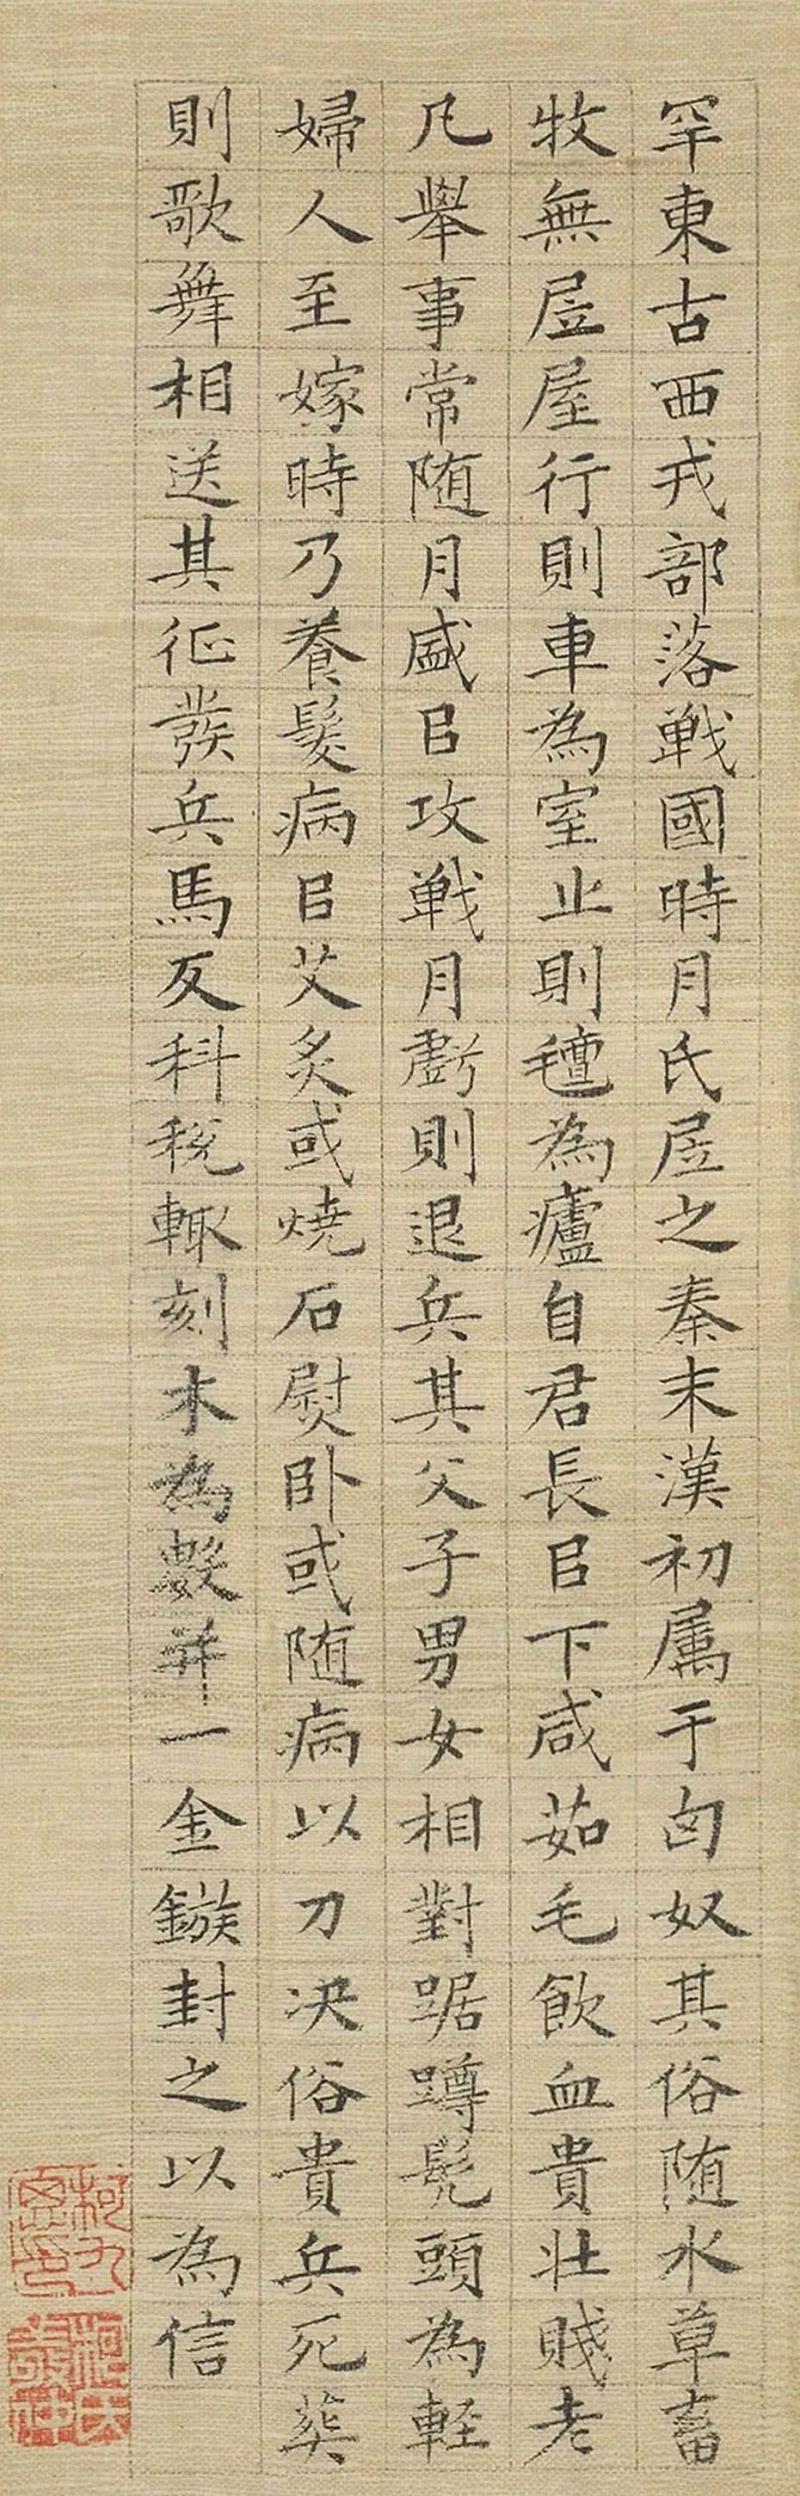 罕東古西戎部落戰國時月氏居之秦末漢初屬于匈奴其俗随水草畜
牧無居屋行則車為室止則氊為廬自君長㠯下咸茹毛飲血貴壮賤老
凡舉事常随月盛㠯攻戰月虧則退兵其父子男女相對踞蹲髡頭為軽
婦人至嫁時乃養髮病㠯艾炙或燒石熨卧或随病以刀决俗貴兵死葬
則歌舞相送其征發兵馬及科税輙刻木為數并一金鏃封之以為信
柯九思印